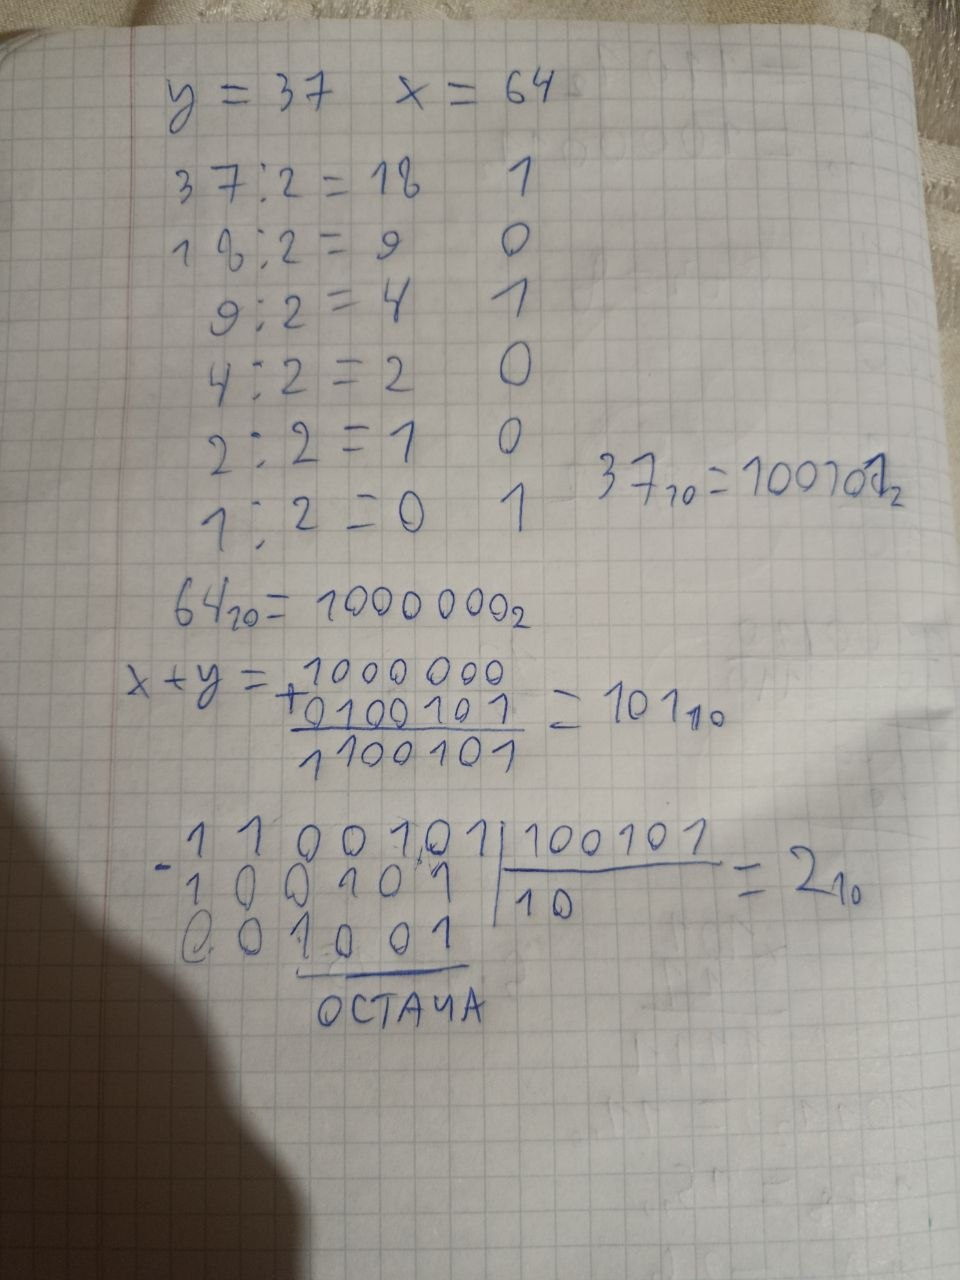 y = 37 x = 64
37:2 = 18 1
18:2 = 9 0
9:2 = 4 1
4:2 = 2 0
2:2 = 1 0
1:2 = 0 1
37₁₀ = 100101₂
64₁₀ = 1000000₂
x + y = 1000000
+ 0100101 = 101₁₀
1100101
- 1100101 | 100101
100101 | 10 = 2₁₀
001001
ОСТАЧА